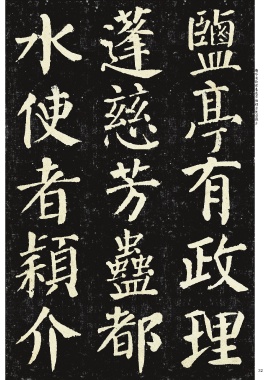 鹽亭有政理
蓬慈芳蠱都
水使者穎介
22